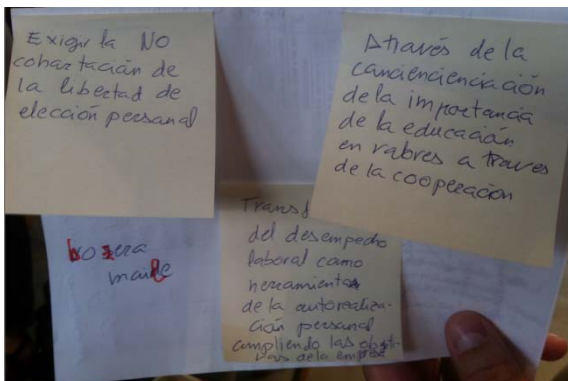 Exigir la NO
cohartación de
la libertad de
elección personal
Através de la
canciencienciación
de la importancia
de la educación
en valores a traves
de la cooperación
del desempeño
laboral como
herramienta
de la autorealiza-
ción personal
cumpliendo las objeti-
vos de la empresa